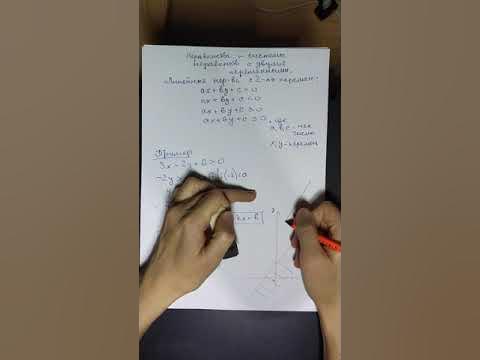 Неравенства и системы
неравенств с двумя
переменными.
Линейные нер-ва с 2-мя перемен.
ax + by + c > 0
ax + by + c < 0
ax + by + c ≥ 0
ax + by + c ≤ 0, где
a, b, c - нек.
числа
x, y - перемен
Пример
3x - 2y + 6 > 0
-2y >
kx + b
y